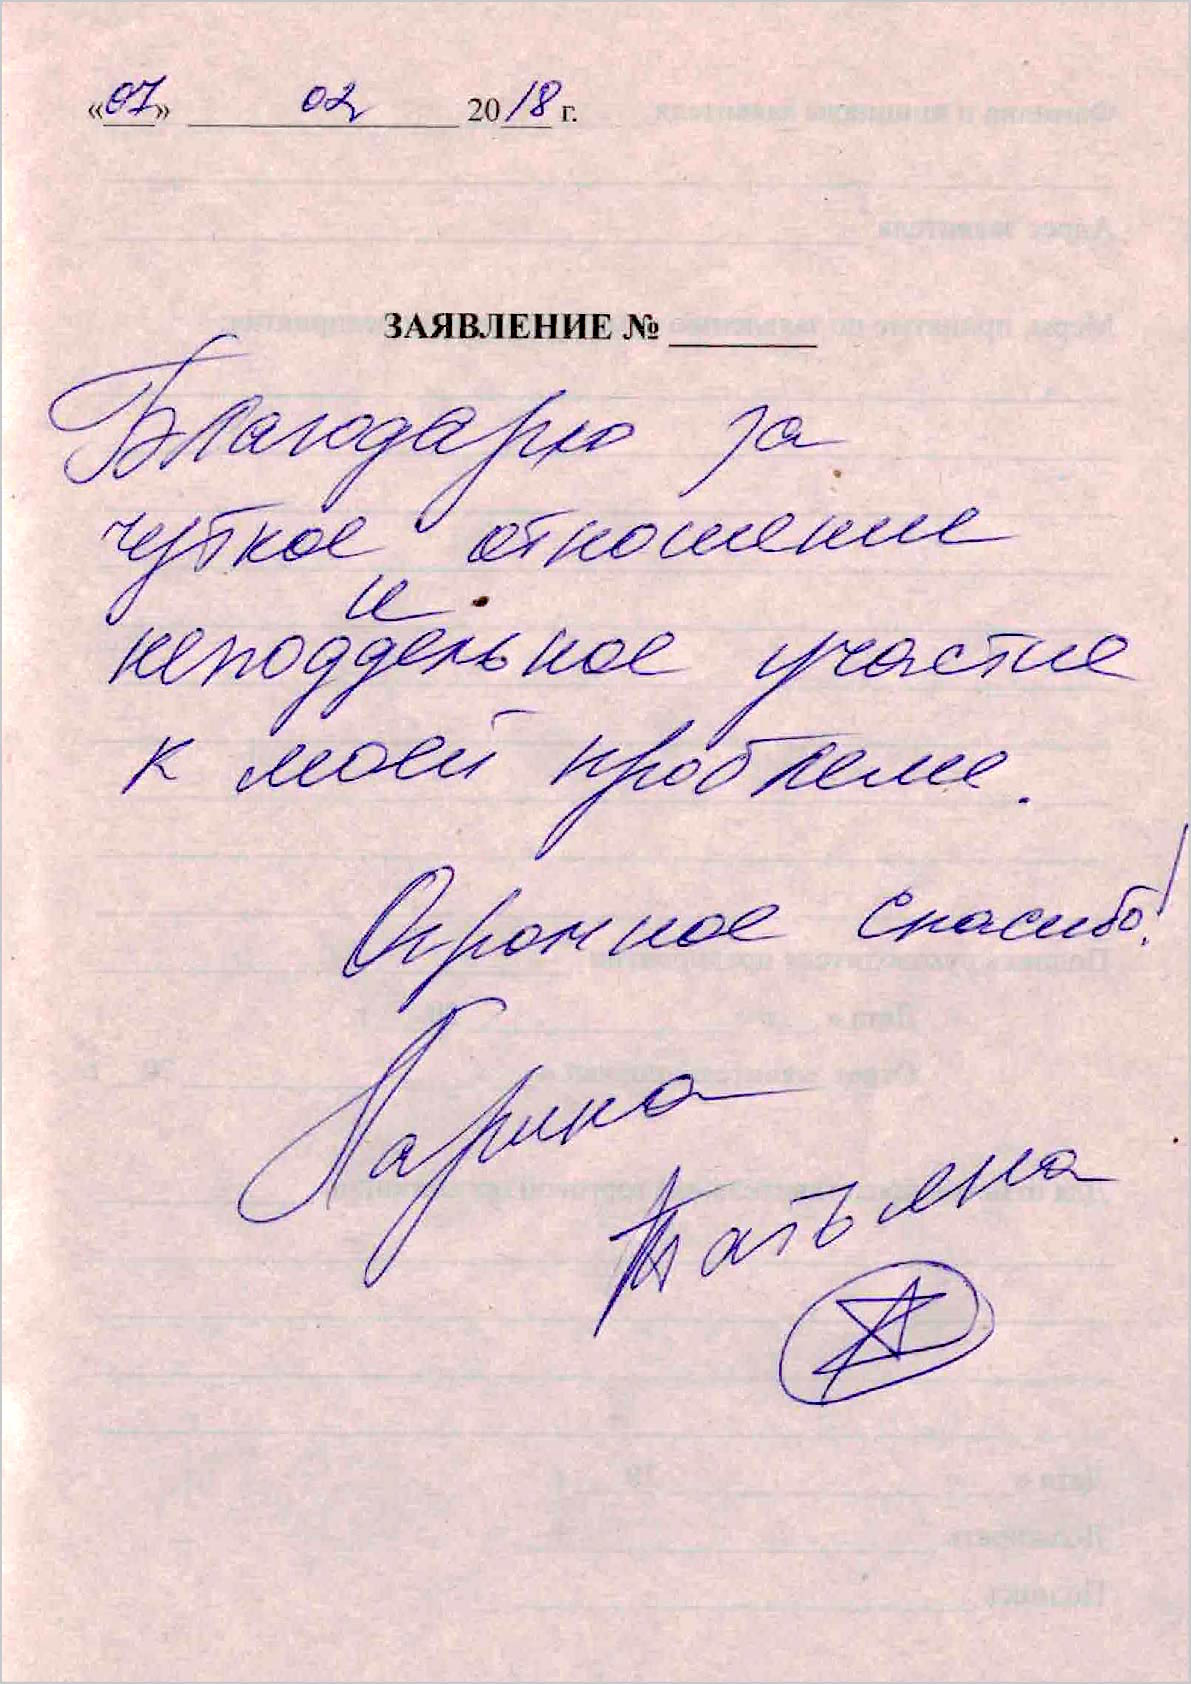 «07» 02 2018 г.
ЗАЯВЛЕНИЕ №
Благодарю за
чуткое отношение
и
неподдельное участие
к моей проблеме.
Огромное спасибо!
Ларина
Татьяна